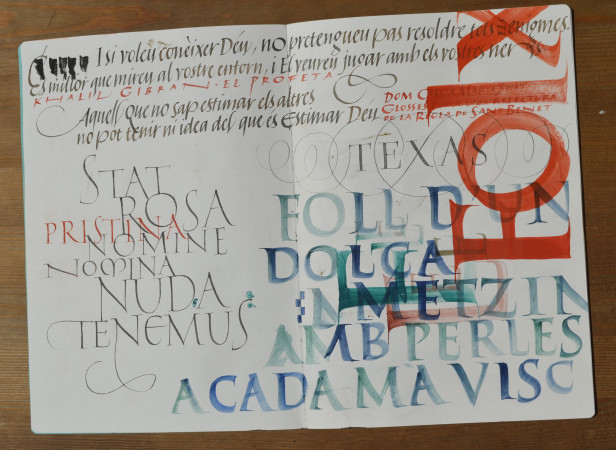 I si voleu conèixer Déu, no pretengueu pas resoldre tots enigmes.
És millor que mireu al vostre entorn, i El veureu jugar amb els vostres
KHALIL GIBRAN · EL PROFETA
Aquell que no sap estimar els altres
no pot tenir ni idea del que és Estimar Déu
DOM
GLOSSES
DE LA REGLA DE SANT BENET
STAT
ROSA
PRISTINA
NOMINE
NOMINA
NUDA
TENEMUS
TEXAS
FOLL D'UN
DOLÇA
METZIN
AMB PERLES
A CADA MÀ VISC